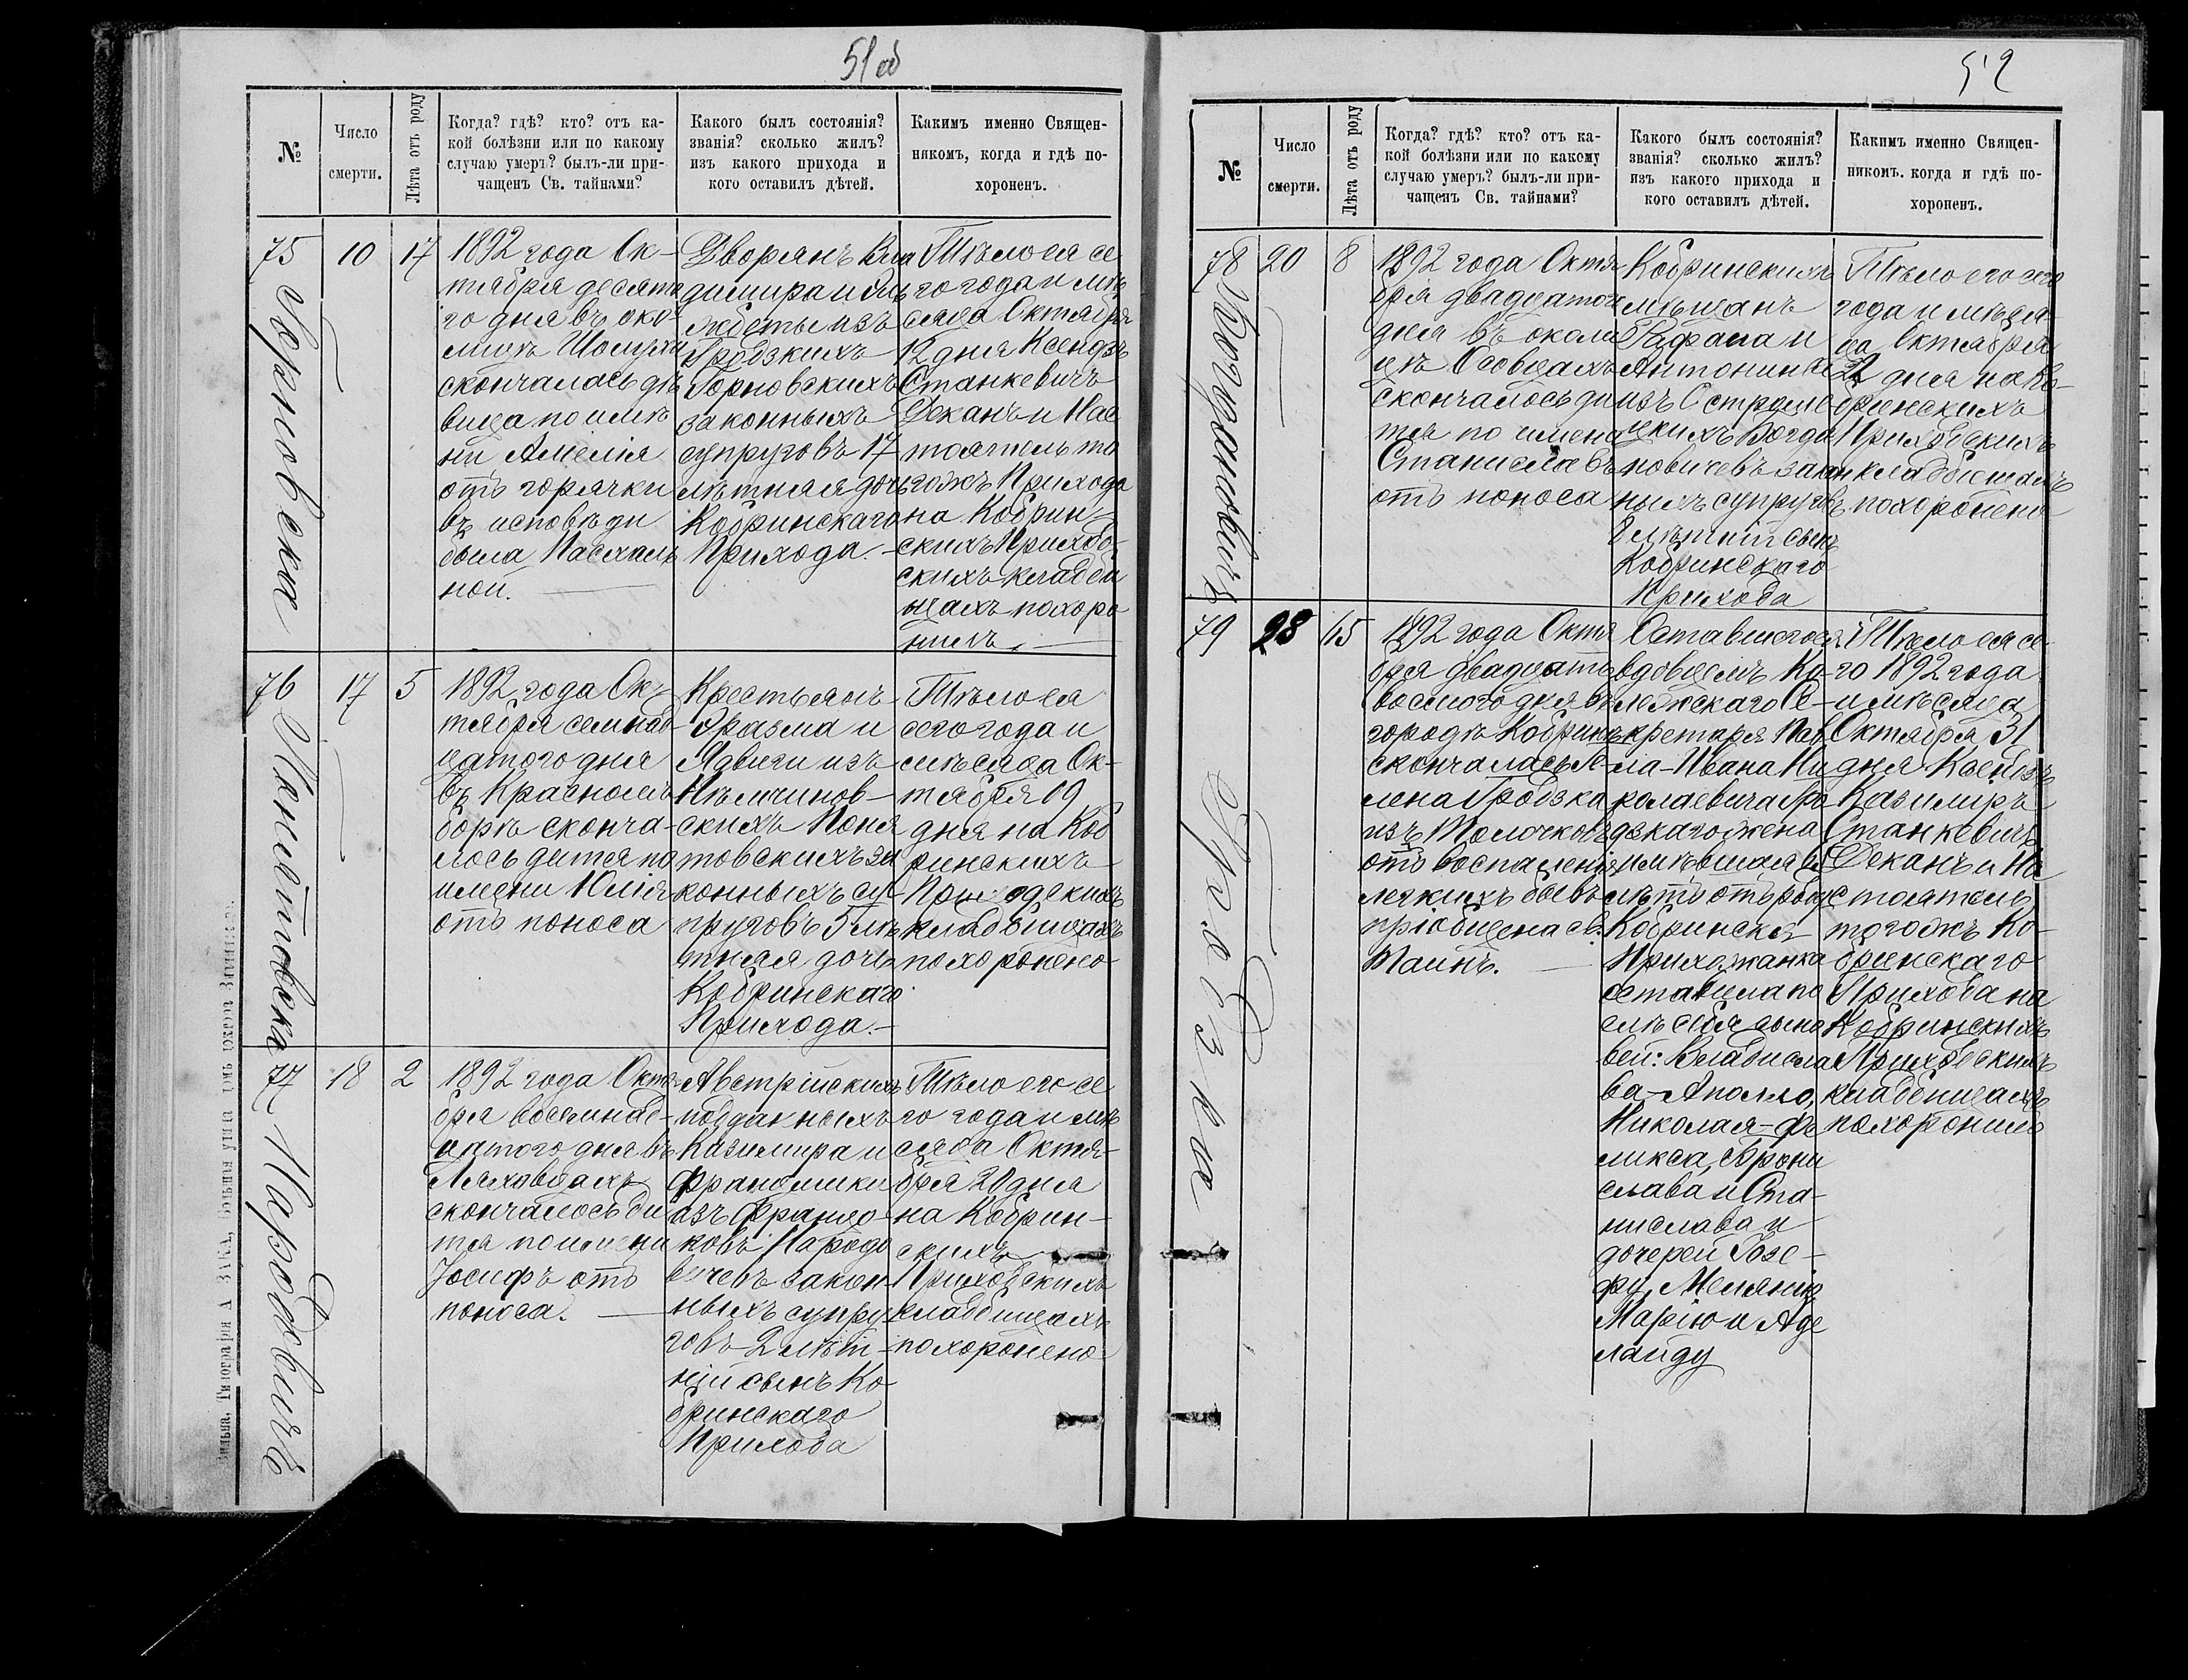 51 об
№
Число
смерти.
Лѣта отъ роду
Когда? гдѣ? кто? отъ ка-
кой болѣзни или по какому
случаю умеръ? былъ-ли при-
чащенъ Св. тайнами?
Какого былъ состоянія?
званія? сколько жилъ?
изъ какого прихода и
кого оставилъ дѣтей.
Какимъ именно Священ-
никомъ, когда и гдѣ по-
хороненъ.
75
Горновская
10
17
1892 года Ок-
тября десята
го дня въ око-
скончалась дѣ
вица по име
ни Амелія
отъ горячки
въ исповѣди
была Пасхаль
ной.
Дворянъ Вла
димира и
изъ
Гродзкихъ
Горновскихъ
законныхъ
супруговъ 17
лѣтняя дочь
Кобринскаго
Прихода.-
Тѣло ея се
го года и мѣ
сяца Октября
12 дня Ксендзъ
Станкевичъ
Деканъ и Нас
тоятель то
гожъ Прихода
на Кобрин-
скихъ Приход-
скихъ кладби
щахъ похоро
нилъ.
76
Понятовска
17
5
1892 года Ок-
тября семнад-
цатого дня
въ Красномъ
борѣ сконча-
лось дитя по
имени Юлія
отъ поноса
Крестьянъ
Эразма и
Ядвиги изъ
Нѣмчинов-
скихъ Поня
товскихъ за
конныхъ су-
пруговъ 5 лѣ
тняя дочь
Кобринскаго
Прихода.-
Тѣло ея
сего года и
мѣсяца Ок-
тября 19
дня на Коб
ринскихъ
Приходскихъ
кладбищахъ
похоронено
77
Народовичъ
18
2
1892 года Октя-
бря восемнад-
цатого дня въ
Ляховцахъ
скончалось ди
тя по имени
Іосифъ отъ
поноса.
Австрійскихъ
подданныхъ
Казимира и
Францишки
изъ Франко-
ковъ Народо
вичевъ закон-
ныхъ супру
говъ 2 лѣт-
ній сынъ Ко
бринскаго
Прихода
Тѣло его се
го года и мѣ
сяца Октя-
бря 20 дня
на Кобрин-
скихъ
Приходскихъ
кладбищахъ
похоронено
52
№
Число
смерти.
Лѣта отъ роду
Когда? гдѣ? кто? отъ ка-
кой болѣзни или по какому
случаю умеръ? былъ-ли при-
чащенъ Св. тайнами?
Какого былъ состоянія?
званія? сколько жилъ?
изъ какого прихода и
кого оставилъ дѣтей.
Какимъ именно Священ-
никомъ. когда и гдѣ по-
хороненъ.
78
Богдановичъ
20
8
1892 года Октя
бря двадцатого
дня въ околи
цѣ Осовцахъ
скончалось ди
тя по имени
Станиславъ
отъ поноса
Кобринскихъ
мѣщанъ
Рафала и
Антонины
изъ Остроме-
цкихъ Богда
новичевъ закон
ныхъ супруговъ
8 лѣтній сынъ
Кобринскаго
Прихода
Тѣло его сего
года и мѣся-
ца Октября
22 дня на Ко-
бринскихъ
Приходскихъ
кладбищахъ
похоронено
79
Гродзка
28
65
1892 года Октя
бря двадцать
восмого дня въ
городѣ Кобринѣ
скончалась Е-
лена Гродзка
изъ Толочковъ
отъ воспаленія
легкихъ бывъ
пріобщена св.
Таинъ.
Оставшегося
вдовцемъ Ко-
лежскаго Се-
кретаря Пав
ла-Ивана Ни
колаевича Гро
дзкаго жена
имѣвшая 65
лѣтъ отъ роду
Кобринская
Прихожанка
оставила по
слѣ себя сыно
вей: Владисла
ва-Аполло,
Николая-Фе
ликса, Брони
слава и Ста-
нислава и
дочерей Юзе-
фу, Меланію
Марію и Аде
лаиду
Тѣло ея се
го 1892 года
и мѣсяца
Октября 31
дня Ксендзъ
Казимиръ
Станкевичъ
Деканъ и На
стоятель
тогожъ Ко-
бринскаго
Прихода на
Кобринскихъ
Приходскихъ
кладбищахъ
похоронилъ